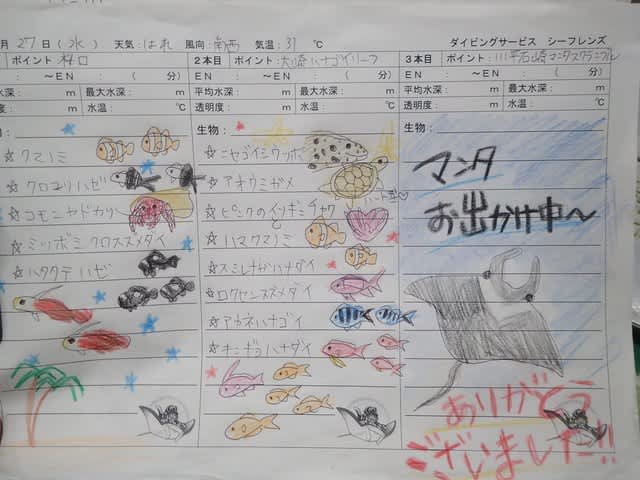 月 27日(水) 天気:はれ 風向:南西 気温:31 ℃
ダイビングサービス シーフレンズ
ポイント:
~EN : (分)
水深: m 最大水深: m
m 水温: ℃
☆クマノミ
☆クロユリハゼ
☆コモンヤドカリ
☆ミツボミクロスズメダイ
☆ハタタテハゼ
2本目 ポイント:大崎ハナゴイリーフ
EN : ~EN : (分)
平均水深: m 最大水深: m
透明度: m 水温: ℃
生物:
☆ニセゴイシウツボ
☆アオウミガメ
☆ピンクのイソギンチャク
と
☆ハマクマノミ
☆スミレナガハナダイ
☆ロクセンスズメダイ
☆アカネハナゴイ
☆キンギョハナダイ
3本目 ポイント:川平石崎マンタスクランブル
EN : ~EN : (分)
平均水深: m 最大水深: m
透明度: m 水温: ℃
生物:
マンタ
お出かけ中~
ありがとう
ございました!!